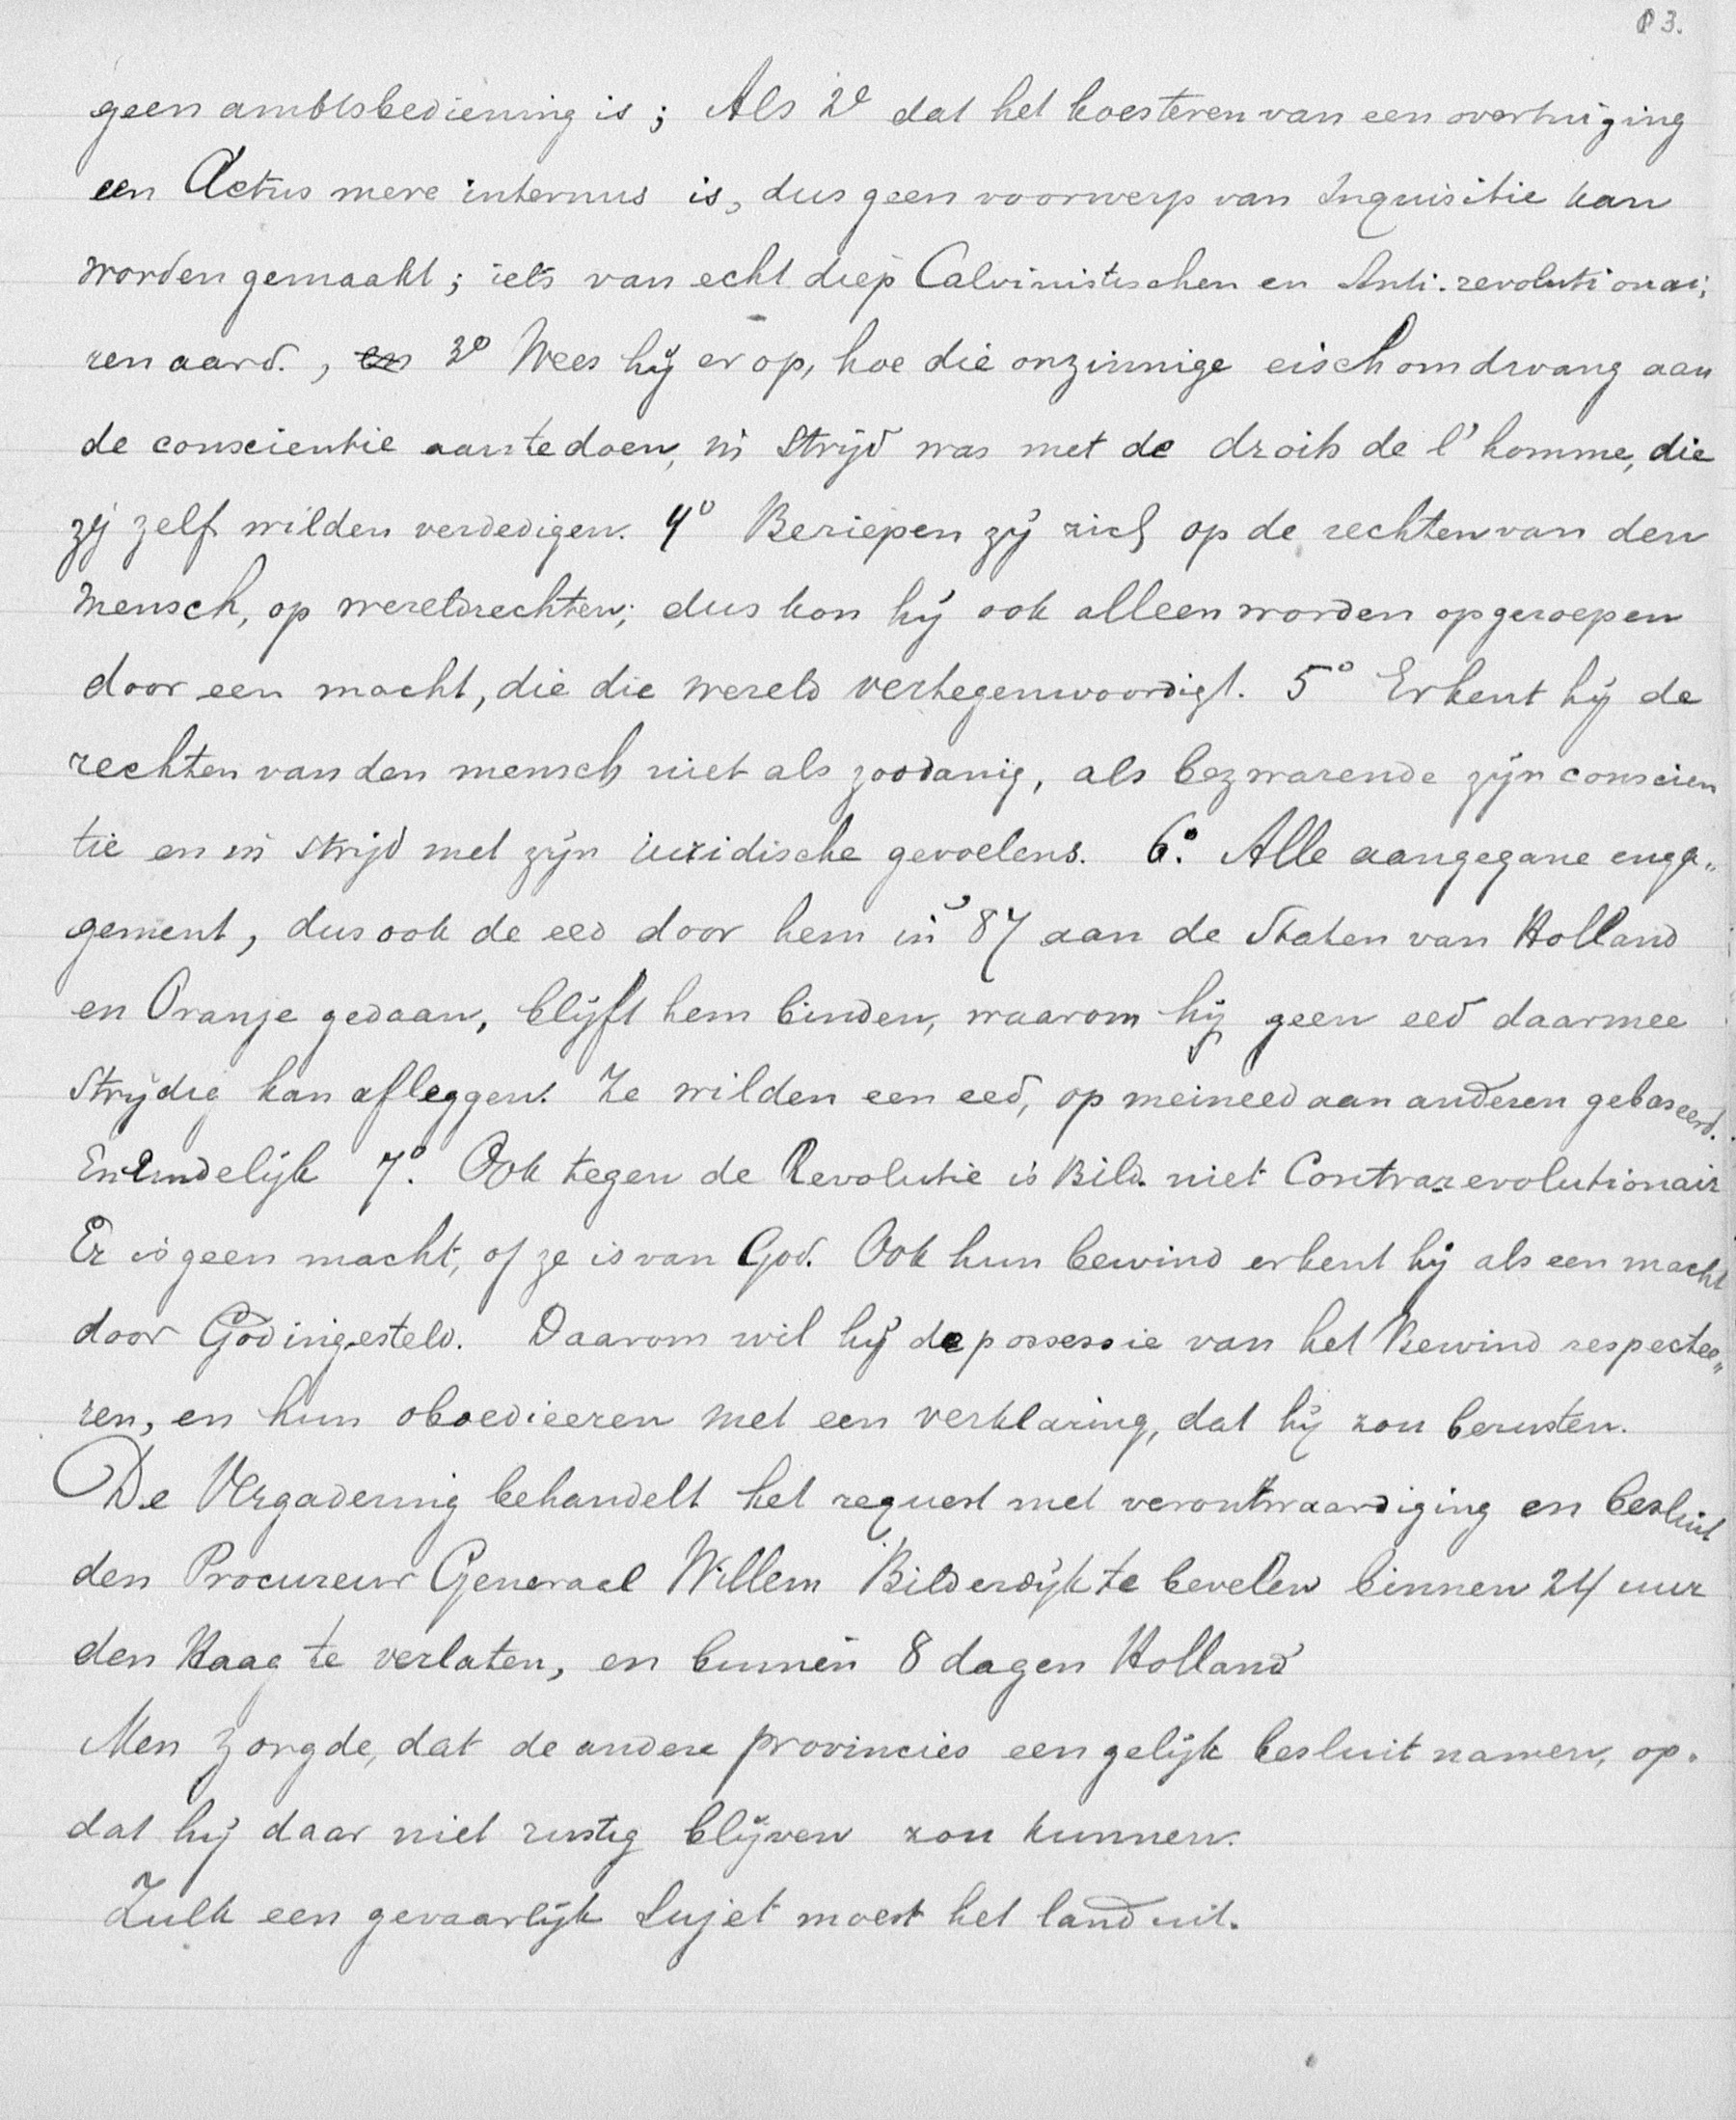 83.
geen ambtsbediening is; Als 2e dat het koesteren van een overtuiging
een Actus mere internus is, dus geen voorwerp van Inquisitie kan
worden gemaakt; iets van echt diep Calvinistischen en Anti-revolutionai-
ren aard., en 3o Wees hij er op, hoe die onzinnige eisch om dwang aan
de conscientie aan te doen, in strijd was met de droits de l'homme, die
zij zelf wilden verdedigen. 4o Beriepen zij zich op de rechten van den
mensch, op wereldrechten; dus kon hij ook alleen worden opgeroepen
door een macht, die die wereld vertegenwoordigt. 5o Erkent hij de
rechten van den mensch niet als zoodanig, als bezwarende zijn conscien
tie en in strijd met zijn iuridische gevoelens. 6o. Alle aangegane enga„
gement, dus ook de eed door hem in '87 aan de Staten van Holland
en Oranje gedaan, blijft hem binden, waarom hij geen eed daarmee
strijdig kan afleggen. Ze wilden een eed, op meineed aan anderen gebaseerd.
En eindelijk 7o. Ook tegen de Revolutie is Bild. niet Contrarevolutionair
Er is geen macht, of ze is van God. Ook hun bewind erkent hij als een macht
door God ingesteld. Daarom wil hij de possessie van het Bewind respectee„
ren, en hun oboedieeren met een verklaring, dat hij zou berusten.
De Vergadering behandelt het request met verontwaardiging en besluit
den Procureur Generaal Willem Bilderdijk te bevelen binnen 24 uur
den Haag te verlaten, en binnen 8 dagen Holland
Men zorgde, dat de andere provincies een gelijk besluit namen, op-
dat hij daar niet rustig blijven zou kunnen.
Zulk een gevaarlijk Sujet moest het land uit.